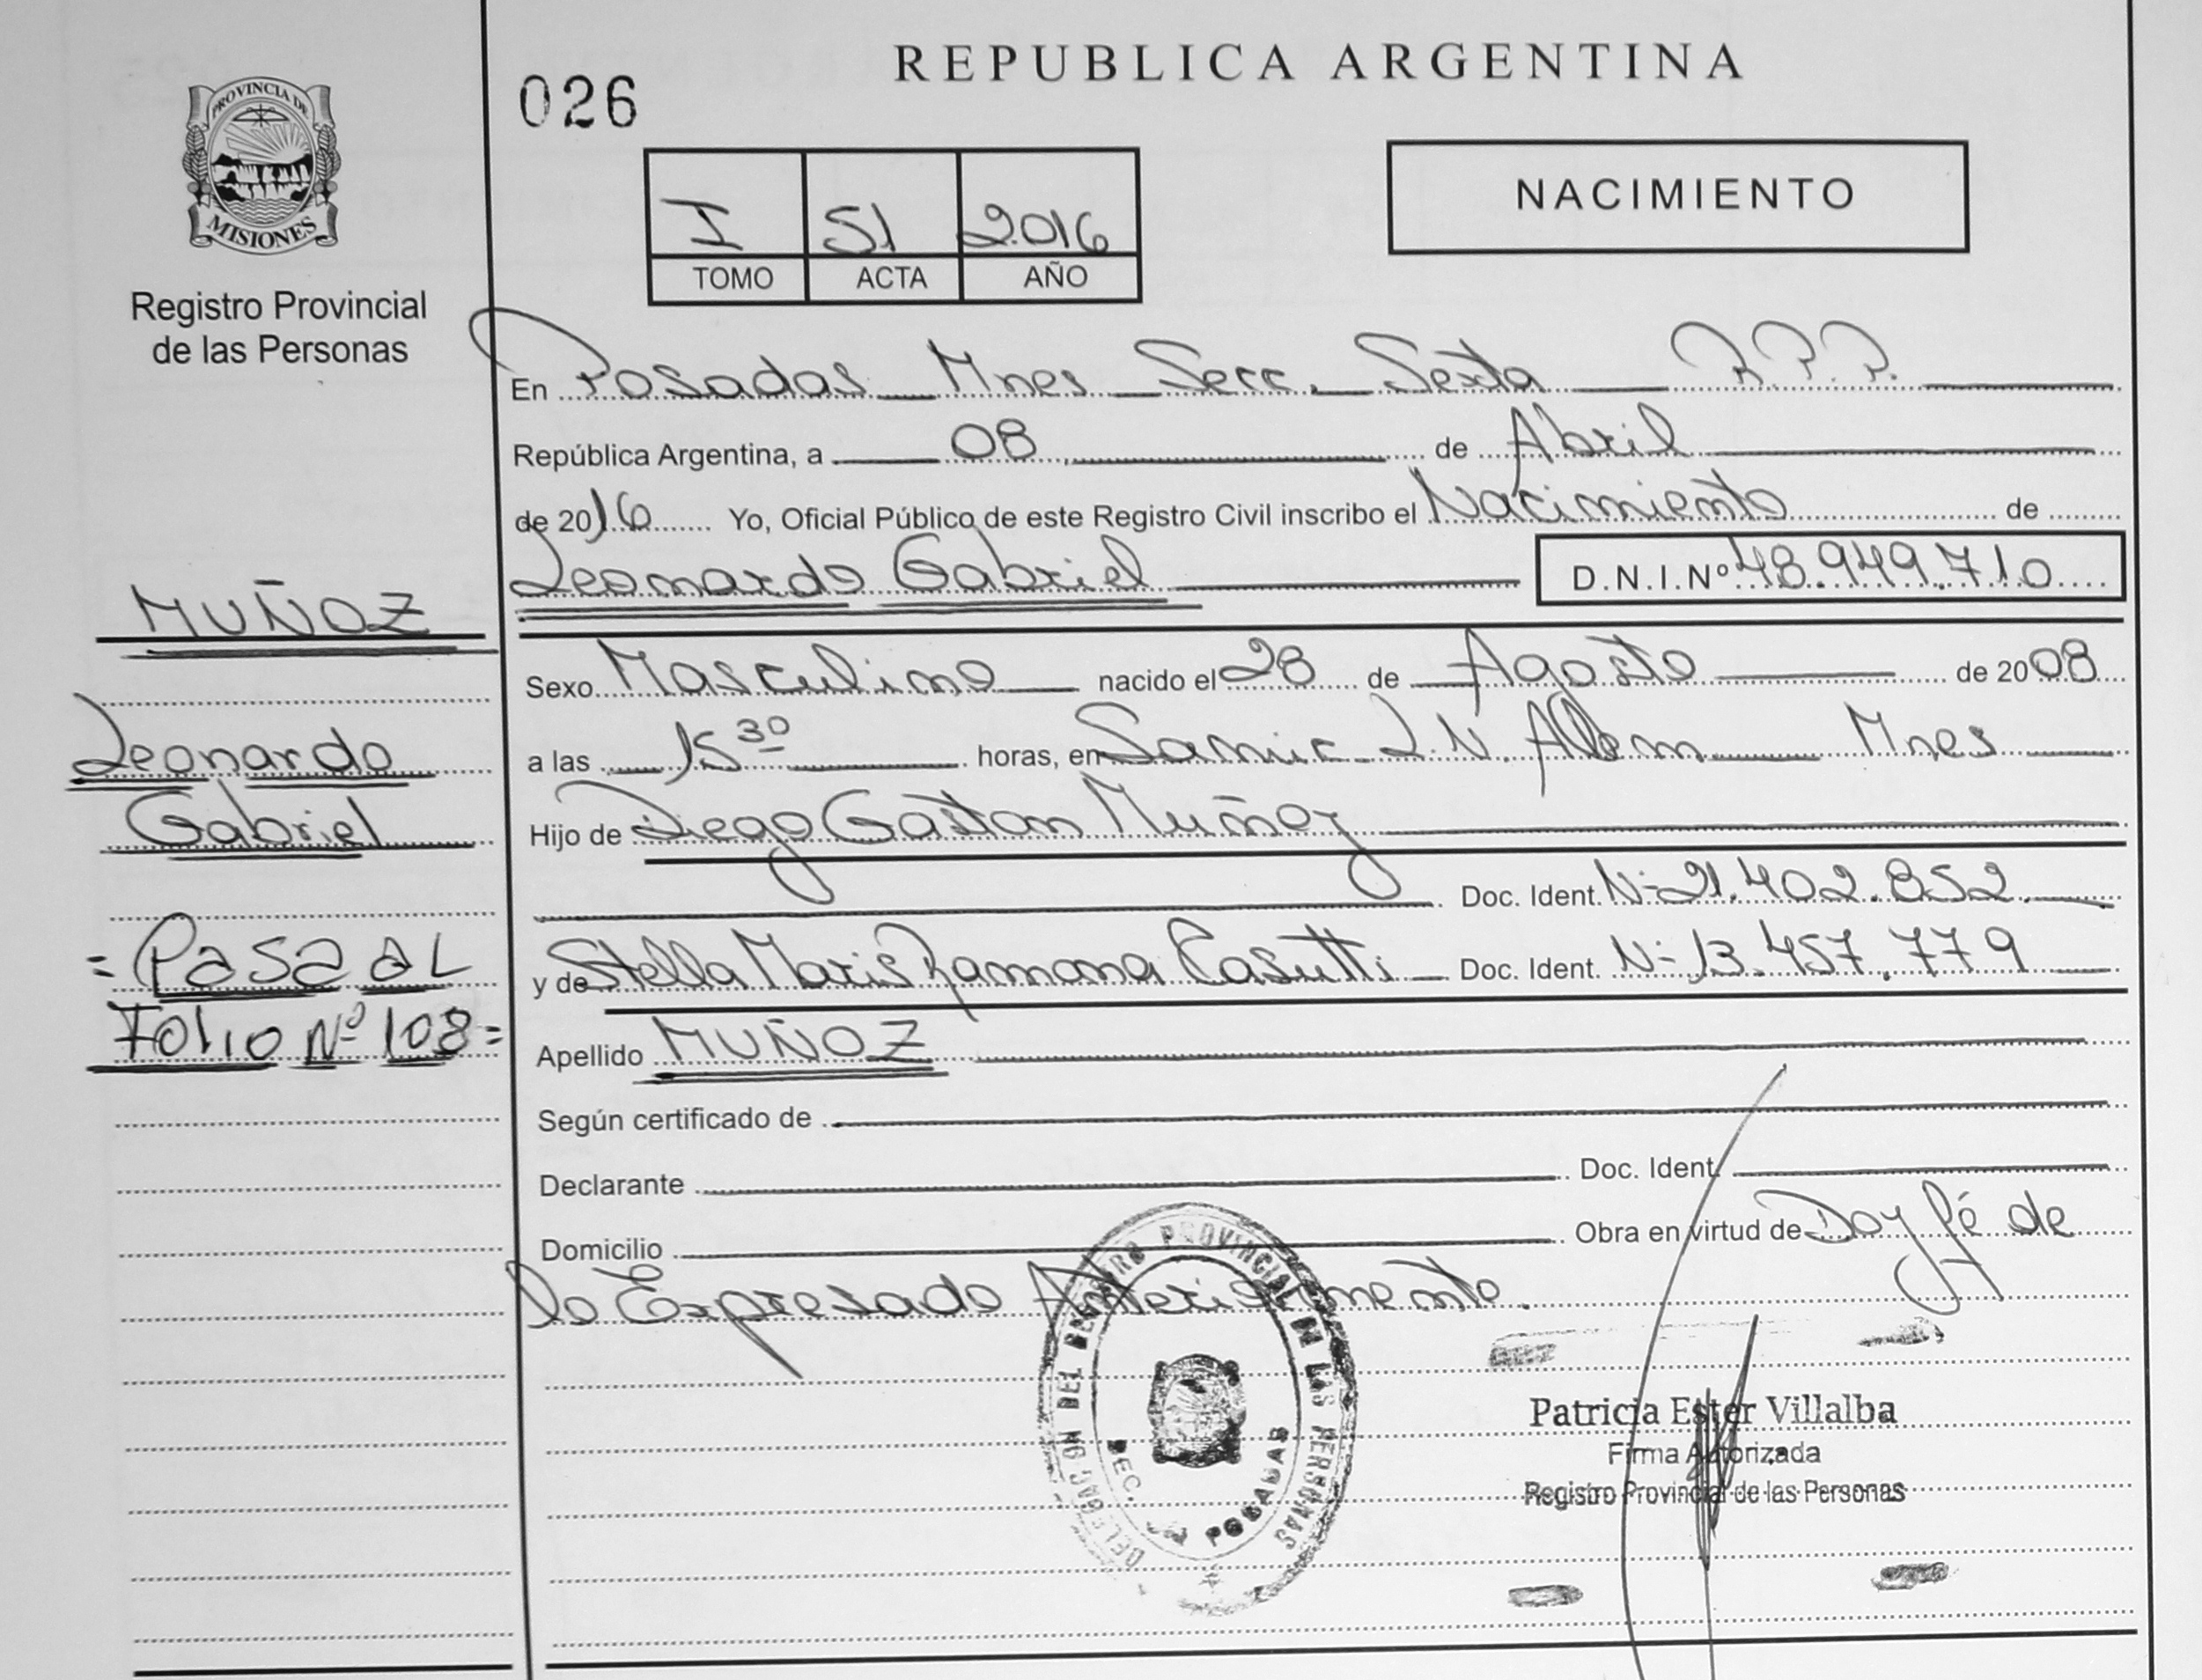 PROVINCIA DE
MISIONES
Registro Provincial
de las Personas
MUÑOZ
Leonardo
Gabriel
= PASA AL
FOLIO Nº 108 =
REPUBLICA ARGENTINA
026
NACIMIENTO
I 51 2016
TOMO ACTA AÑO
En Posadas Mnes Secc. Sexta R.P.P.
República Argentina, a 08 de Abril
de 2016 Yo, Oficial Público de este Registro Civil inscribo el Nacimiento de
Leonardo Gabriel D.N.I.Nº 48.949.710
Sexo Masculino nacido el 28 de Agosto de 2008
a las 15 30 horas, en Samic L.N. Alem Mnes
Hijo de Diego Gaston Muñoz
Doc. Ident. Nº 21.402.852
y de Stella Maris Ramona Casutti Doc. Ident. Nº 13.457.779
Apellido MUÑOZ
Según certificado de
Declarante Doc. Ident.
Domicilio Obra en virtud de Doy fé de
lo Expresado Anteriormente.
DELEGACION DEL REGISTRO PROVINCIAL DE LAS PERSONAS
SEC.
POSADAS
Patricia Ester Villalba
Firma Autorizada
Registro Provincial de las Personas